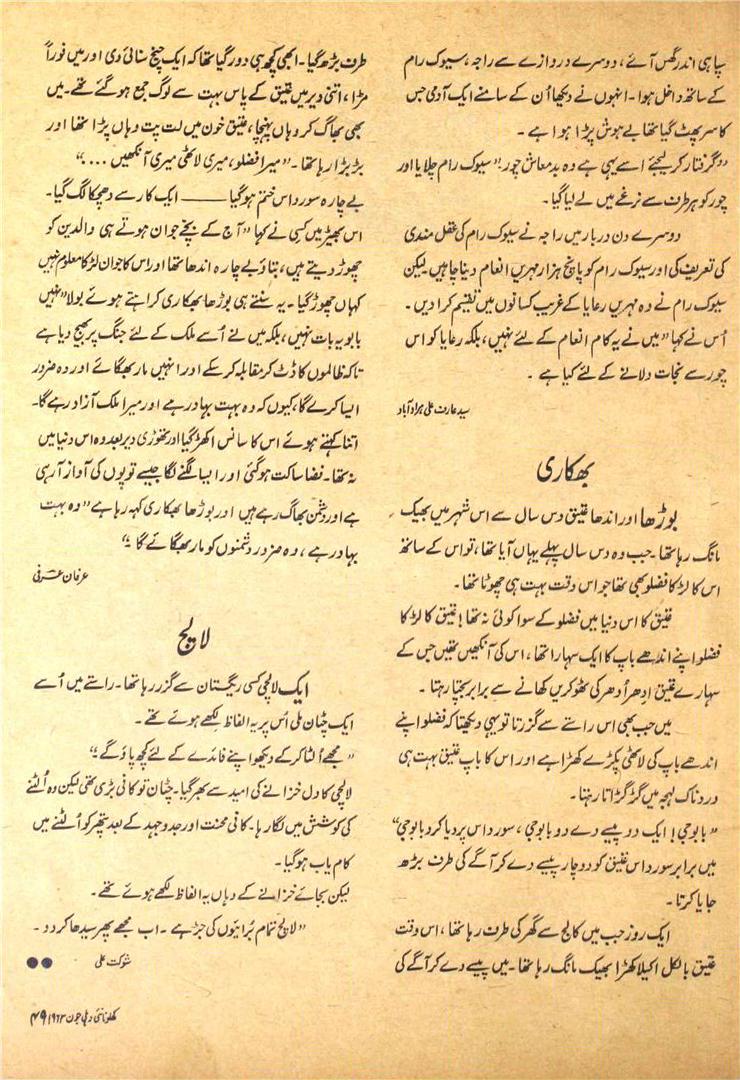 سپاہی اندر گھس آئے، دوسرے دروازے سے راجہ، سیوک رام
کے ساتھ داخل ہوا۔ انہوں نے دیکھا اُن کے سامنے ایک آدمی جس
کا سر پھٹ گیا تھا بے ہوش پڑا ہوا ہے۔
”گرفتار کر لیجئے اسے یہی ہے وہ بدمعاش چور“ سیوک رام چلایا اور
چور کو ہر طرف سے نرغے میں لے لیا گیا۔
دوسرے دن دربار میں راجہ نے سیوک رام کی عقل مندی
کی تعریف کی اور سیوک رام کو پانچ ہزار مہریں انعام دینا چاہیں لیکن
سیوک رام نے وہ مہریں رعایا کے غریب کسانوں میں تقسیم کرا دیں۔
اُس نے کہا ”میں نے یہ کام انعام کے لئے نہیں، بلکہ رعایا کو اس
چور سے نجات دلانے کے لئے کیا ہے۔
سید عارف علی مرادآباد
بھکاری
بوڑھا اور اندھا عتیق دس سال سے اس شہر میں بھیک
مانگ رہا تھا۔ جب وہ دس سال پہلے یہاں آیا تھا، تو اس کے ساتھ
اس کا لڑکا فضلو بھی تھا جو اس وقت بہت ہی چھوٹا تھا۔
عتیق کا اس دنیا میں فضلو کے سوا کوئی نہ تھا! عتیق کا لڑکا
فضلو اپنے اندھے باپ کا ایک سہارا تھا، اس کی آنکھیں تھیں جس کے
سہارے عتیق اِدھر اُدھر کی ٹھوکریں کھانے سے برابر بچتا رہتا۔
میں جب بھی اس راستے سے گزرتا تو یہی دیکھتا کہ فضلو اپنے
اندھے باپ کی لاٹھی پکڑے کھڑا ہے اور اس کا باپ عتیق بہت ہی
دردناک لہجہ میں گڑگڑاتا رہتا۔
”بابوجی! ایک دو پیسے دے دو بابوجی، سورداس پر دیا کرو بابوجی“
میں برابر سورداس عتیق کو دو چار پیسے دے کر آگے کی طرف بڑھ
جایا کرتا۔
ایک روز جب میں کالج سے گھر کی طرف رہا تھا، اس وقت
عتیق بالکل اکیلا کھڑا بھیک مانگ رہا تھا۔ میں پیسے دے کر آگے کی
طرف بڑھ گیا۔ ابھی کچھ ہی دور گیا تھا کہ ایک چیخ سنائی دی اور میں فوراً
مڑا، اتنی دیر میں عتیق کے پاس بہت سے لوگ جمع ہو گئے تھے۔ میں
بھی بھاگ کر وہاں پہنچا، عتیق خون میں لت پت وہاں پڑا تھا اور
بڑبڑا رہا تھا۔ ”میرا فضلو، میری لاٹھی میری آنکھیں ....“
بے چارہ سورداس ختم ہو گیا ——— ایک کار سے دھچکا لگ گیا۔
اس بھیڑ میں کسی نے کہا ”آج کے بچے جوان ہوتے ہی والدین کو
چھوڑ دیتے ہیں، بتاؤ بے چارہ اندھا تھا اور اس کا جوان لڑکا معلوم نہیں
کہاں چھوڑ گیا۔ یہ سنتے ہی بوڑھا بھکاری کراہتے ہوئے بولا ”نہیں
بابو یہ بات نہیں، بلکہ میں نے اُسے ملک کے لئے جنگ پر بھیج دیا ہے
تاکہ ظالموں کا ڈٹ کر مقابلہ کر سکے اور انہیں مار بھگائے اور وہ ضرور
ایسا کرے گا، کیوں کہ وہ بہت بہادر ہے اور میرا ملک آزاد رہے گا۔
اتنا کہتے ہوئے اس کا سانس اکھڑ گیا اور تھوڑی دیر بعد وہ اس دنیا میں
نہ تھا۔ فضا ساکت ہو گئی اور ایسا لگنے لگا جیسے توپوں کی آواز آ رہی
ہے اور دشمن بھاگ رہے ہیں اور بوڑھا بھکاری کہہ رہا ہے ”وہ بہت
بہادر ہے، وہ ضرور دشمنوں کو مار بھگائے گا۔“
عرفان عشرفی
لالچ
ایک لالچی کسی ریگستان سے گزر رہا تھا۔ راستے میں اُسے
ایک چٹان ملی اُس پر یہ الفاظ لکھے ہوئے تھے۔
”مجھے اُلٹا کر کے دیکھو اپنے فائدے کے لئے کچھ پاؤ گے۔“
لالچی کا دل خزانے کی امید سے بھر گیا۔ چٹان تو کافی بڑی تھی لیکن وہ اُلٹنے
کی کوشش میں لگا رہا۔ کافی محنت اور جدوجہد کے بعد پتھر کو اُلٹنے میں
کام یاب ہو گیا۔
لیکن بجائے خزانے کے وہاں یہ الفاظ لکھے ہوئے تھے۔
”لالچ تمام بُرائیوں کی جڑ ہے۔ اب مجھے پھر سیدھا کر دو۔
شوکت علی
کھلونا نئی دہلی جون ۱۹۶۳ ۴۹